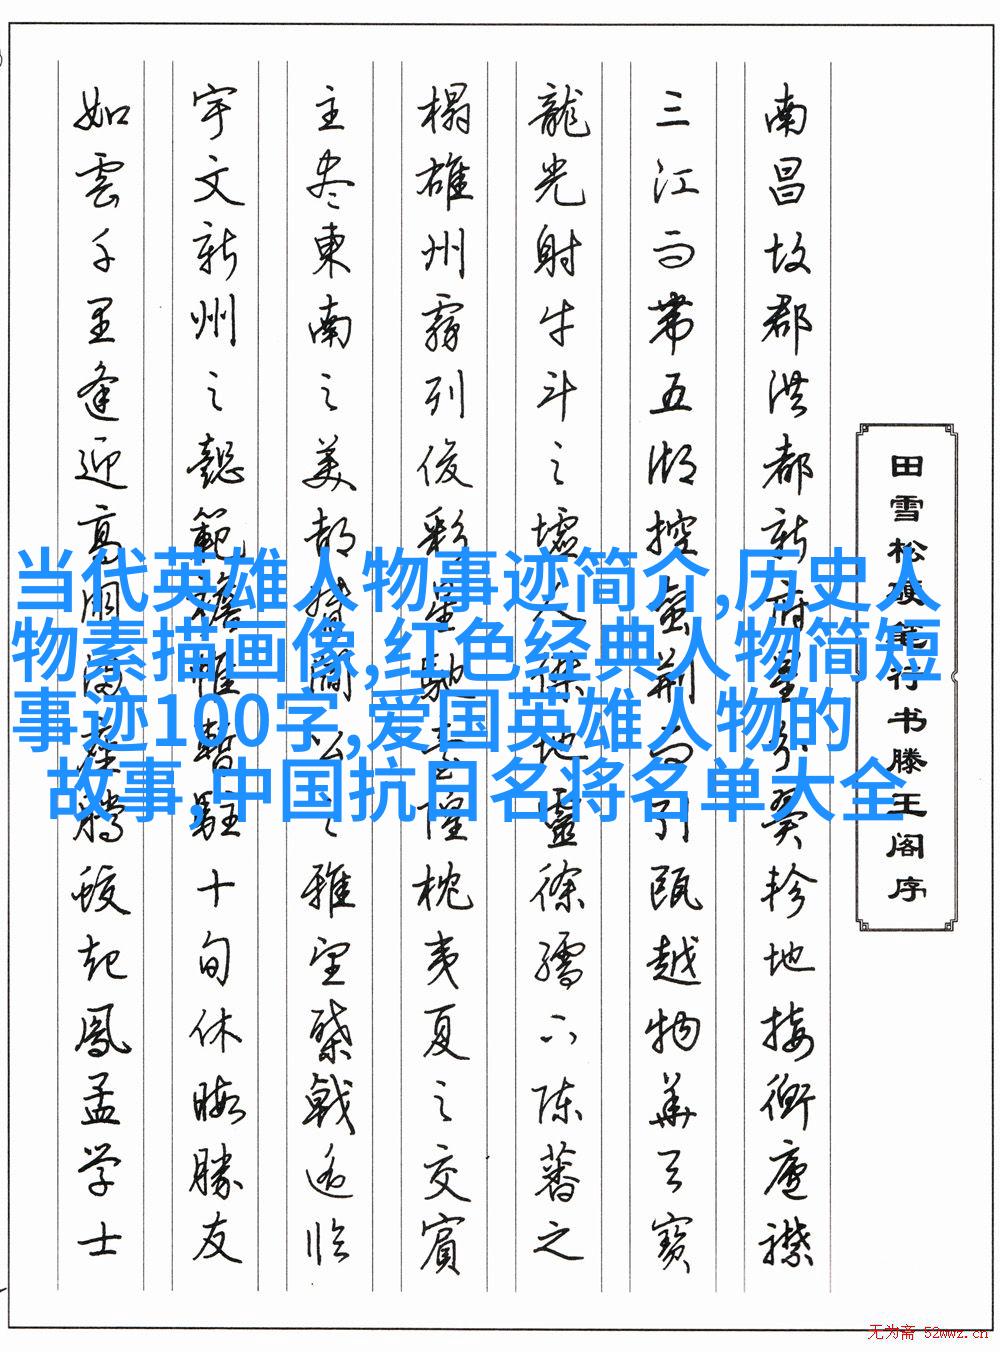 田雪松硬笔行书滕王阁序
南昌故郡洪都新府星分翼轸地接衡廬襟
三江而带五湖控蛮荆而引瓯越物華天寶
龍光射牛斗之墟人傑地靈徐孺下陈蕃之
榻雄州霧列俊彩星馳臺隍枕夷夏之交賓
主尽東南之美都督閻公之雅望棨戟遥临
宇文新州之懿範襜帷暫駐十旬休暇勝友
如雲千里逢迎高朋满座腾蛟起鳳孟学士
当代英雄人物事迹简介,历史人
物素描画像,红色经典人物简短
事迹100字,爱国英雄人物的
故事,中国抗日名将名单大全
无为斋 52wwz.cn